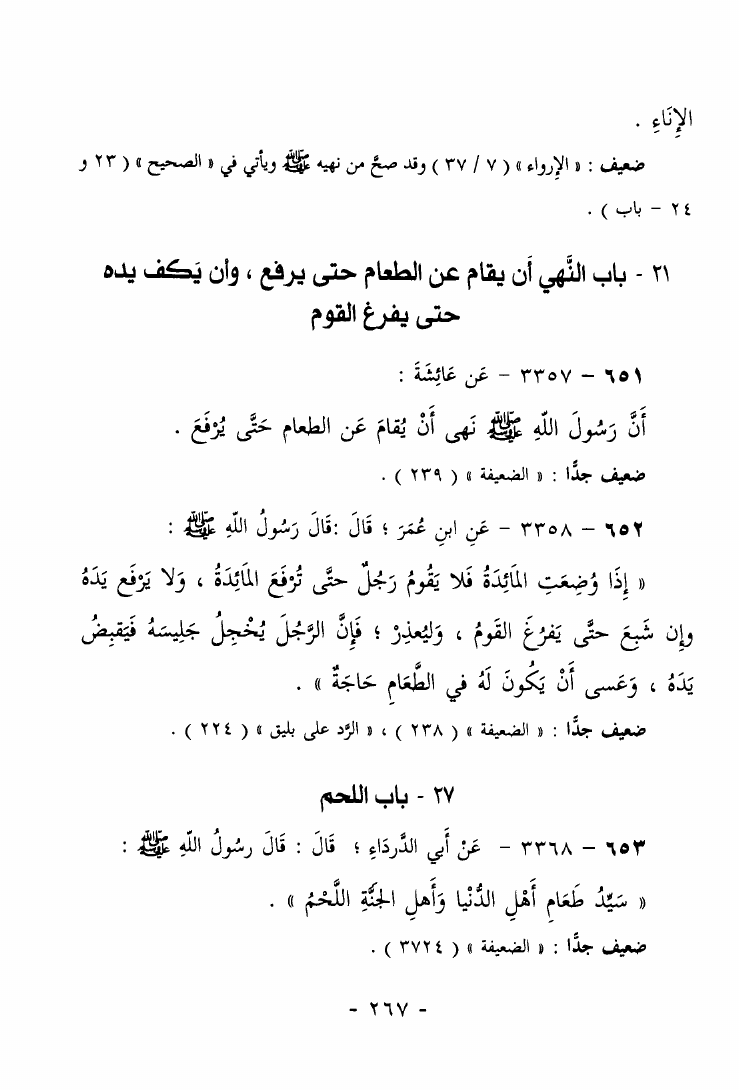 الإِنَاءِ .
ضعيف : « الإرواء » ( ٧ / ٣٧ ) وقد صحَّ من نهيه ﷺ ويأتي في « الصحيح » ( ٢٣ و
٢٤ – باب ) .
٢١ - باب النَّهي أَن يقام عن الطعام حتى يرفع ، وأن يَكف يده
حتى يفرغ القوم
٦٥١ – ٣٣٥٧ – عَن عَائِشَةَ :
أَنَّ رَسُولَ اللّهِ ﷺ نَهى أَنْ يُقامَ عَن الطعام حَتَّى يُرْفَعَ .
ضعيف جدًّا : « الضعيفة » ( ٢٣٩ ) .
٦٥٢ – ٣٣٥٨ – عَنِ ابنِ عُمَرَ ؛ قَالَ :قَالَ رَسُولُ اللّهِ ﷺ :
« إِذَا وُضِعَتِ المَائِدَةُ فَلا يَقُومُ رَجُلٌ حتَّى تُرْفَعَ المَائِدَةُ ، وَلا يَرْفَع يَدَهُ
وإِن شَبِعَ حتَّى يَفرُغَ القَومُ ، وَليُعذِرْ ؛ فَإِنَّ الرَّجُلَ يُخْجِلُ جَلِيسَهُ فَيَقبِضُ
يَدَهُ ، وَعَسى أَنْ يَكُونَ لَهُ في الطَّعَامِ حَاجَةٌ » .
ضعيف جدًّا : « الضعيفة » ( ٢٣٨ ) ، « الرَّد على بليق » ( ٢٢٤ ) .
٢٧ - باب اللحم
٦٥٣ – ٣٣٦٨ – عَنْ أَبي الدَّردَاءِ ؛ قَالَ : قَالَ رسُولُ اللّهِ ﷺ :
« سَيِّدُ طَعَامِ أَهْلِ الدُّنْيا وَأَهلِ الجَنَّةِ اللَّحْمُ » .
ضعيف جدًّا : « الضعيفة » ( ٣٧٢٤ ) .
- ٢٦٧ -